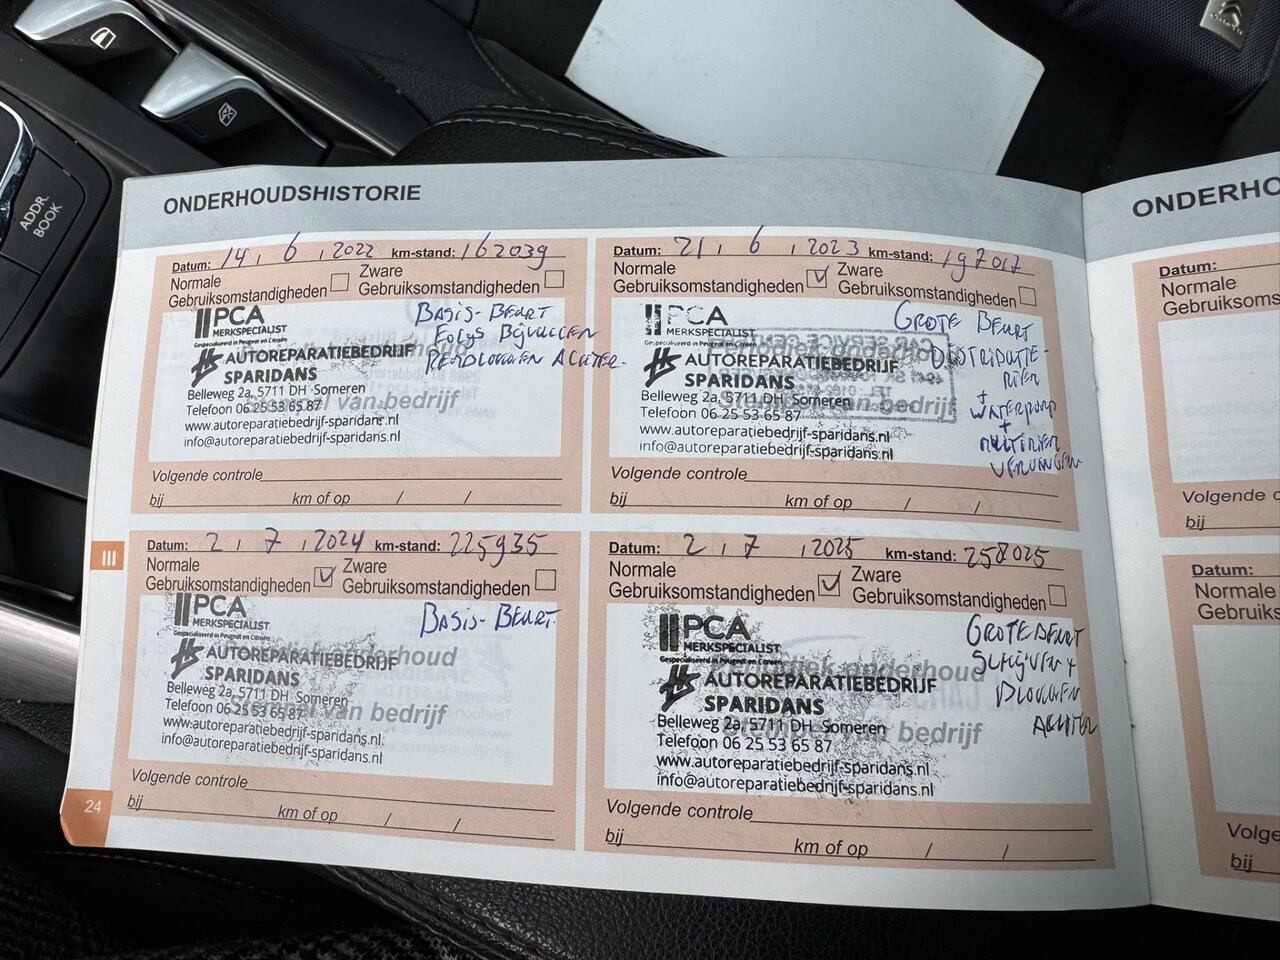 ADDR.
BOOK
ONDERHOUDSHISTORIE
Datum: 14, 6, 2022 km-stand: 162039
Normale
Gebruiksomstandigheden
Zware
Gebruiksomstandigheden
PCA
MERKSPECIALIST
Gespecialiseerd in Peugeot en Citroën
AUTOREPARATIEBEDRIJF
SPARIDANS
Belleweg 2a, 5711 DH Someren
Telefoon 06 25 53 65 87
www.autoreparatiebedrijf-sparidans.nl
info@autoreparatiebedrijf-sparidans.nl
Stempel van bedrijf
BASIS-BEURT
EOLYS BIJVULLEN
REMBLOKKEN ACHTER
Volgende controle
bij km of op / /
Datum: 21, 6, 2023 km-stand: 197017
Normale
Gebruiksomstandigheden
Zware
Gebruiksomstandigheden
PCA
MERKSPECIALIST
Gespecialiseerd in Peugeot en Citroën
AUTOREPARATIEBEDRIJF
SPARIDANS
Belleweg 2a, 5711 DH Someren
Telefoon 06 25 53 65 87
www.autoreparatiebedrijf-sparidans.nl
info@autoreparatiebedrijf-sparidans.nl
van bedrijf
GROTE BEURT
DISTRIBUTIE-
RIEM
+
WATERPOMP
+
MULTIRIEM
VERVANGEN
Volgende controle
bij km of op / /
III
Datum: 2, 7, 2024 km-stand: 225935
Normale
Gebruiksomstandigheden
Zware
Gebruiksomstandigheden
PCA
MERKSPECIALIST
Gespecialiseerd in Peugeot en Citroën
Periodiek onderhoud
AUTOREPARATIEBEDRIJF
SPARIDANS
Belleweg 2a, 5711 DH Someren
Telefoon 06 25 53 65 87
www.autoreparatiebedrijf-sparidans.nl
info@autoreparatiebedrijf-sparidans.nl
Stempel van bedrijf
BASIS-BEURT
Volgende controle
bij km of op / /
Datum: 2, 7, 2025 km-stand: 258025
Normale
Gebruiksomstandigheden
Zware
Gebruiksomstandigheden
PCA
MERKSPECIALIST
Gespecialiseerd in Peugeot en Citroën
Periodiek onderhoud
AUTOREPARATIEBEDRIJF
SPARIDANS
Belleweg 2a, 5711 DH Someren
Telefoon 06 25 53 65 87
www.autoreparatiebedrijf-sparidans.nl
info@autoreparatiebedrijf-sparidans.nl
Stempel van bedrijf
GROTE BEURT
SCHIJVEN +
BLOKKEN
ACHTER
Volgende controle
bij km of op / /
24
ONDERHO
Datum:
Normale
Gebruiksoms
Volgende c
bij
Datum:
Normale
Gebruiks
Volge
bij